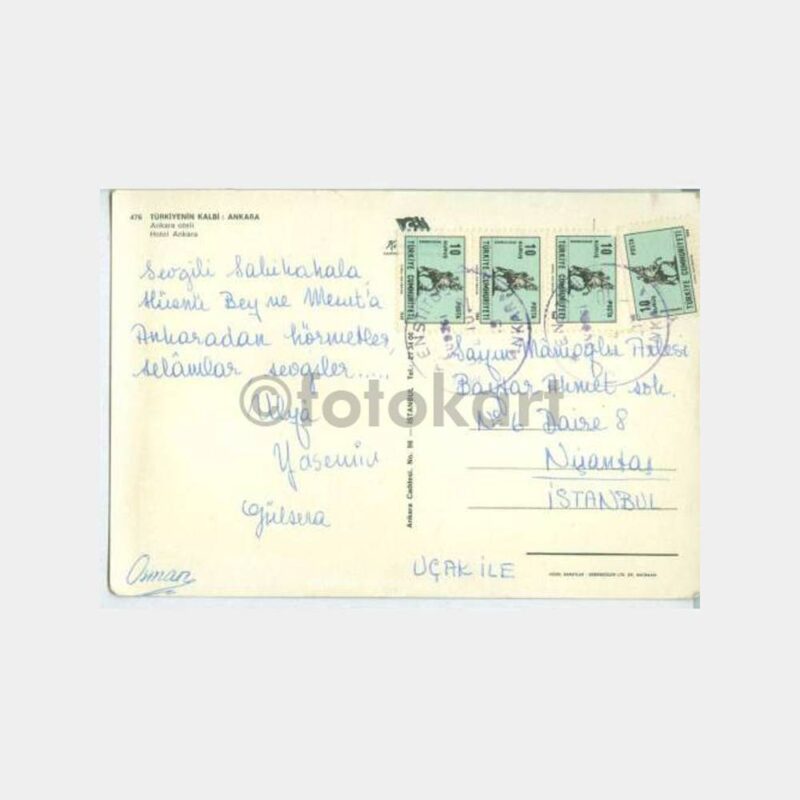 476 TÜRKİYENİN KALBİ : ANKARA
Ankara oteli
Hotel Ankara
Sevgili Sabihahala
Hüsnü Bey ve Mesut'a
Ankaradan hörmetler,
selâmlar sevgiler.....
Hülya
Yasemin
Gülsera
Osman
UÇAK İLE
Ankara Caddesi, No. 98 — İSTANBUL Tel.:
10 KURUŞ
TÜRKİYE CUMHURİYETİ
POSTA
10 KURUŞ
TÜRKİYE CUMHURİYETİ
POSTA
10 KURUŞ
TÜRKİYE CUMHURİYETİ
POSTA
10 KURUŞ
TÜRKİYE CUMHURİYETİ
POSTA
ANKARA
Sayın Manioğlu Ailesi
Baytar Ahmet sok.
No 6 Daire 8
Nişantaş
İSTANBUL
©fotokart